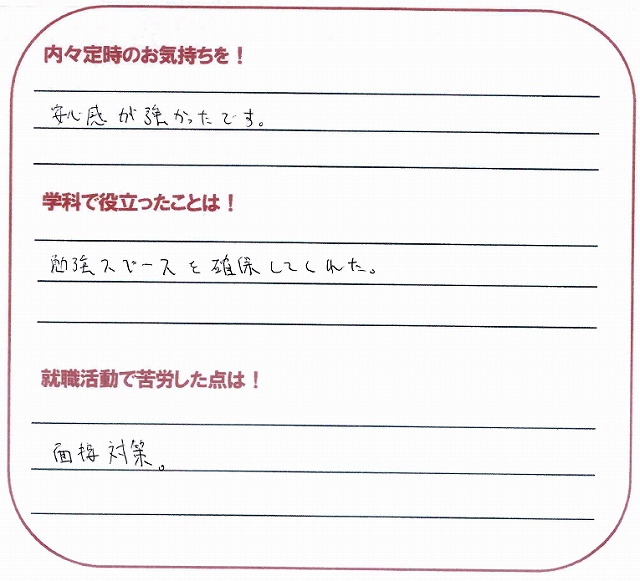 内々定時のお気持ちを！
安心感が強かったです。
学科で役立ったことは！
勉強スペースを確保してくれた。
就職活動で苦労した点は！
面接対策。